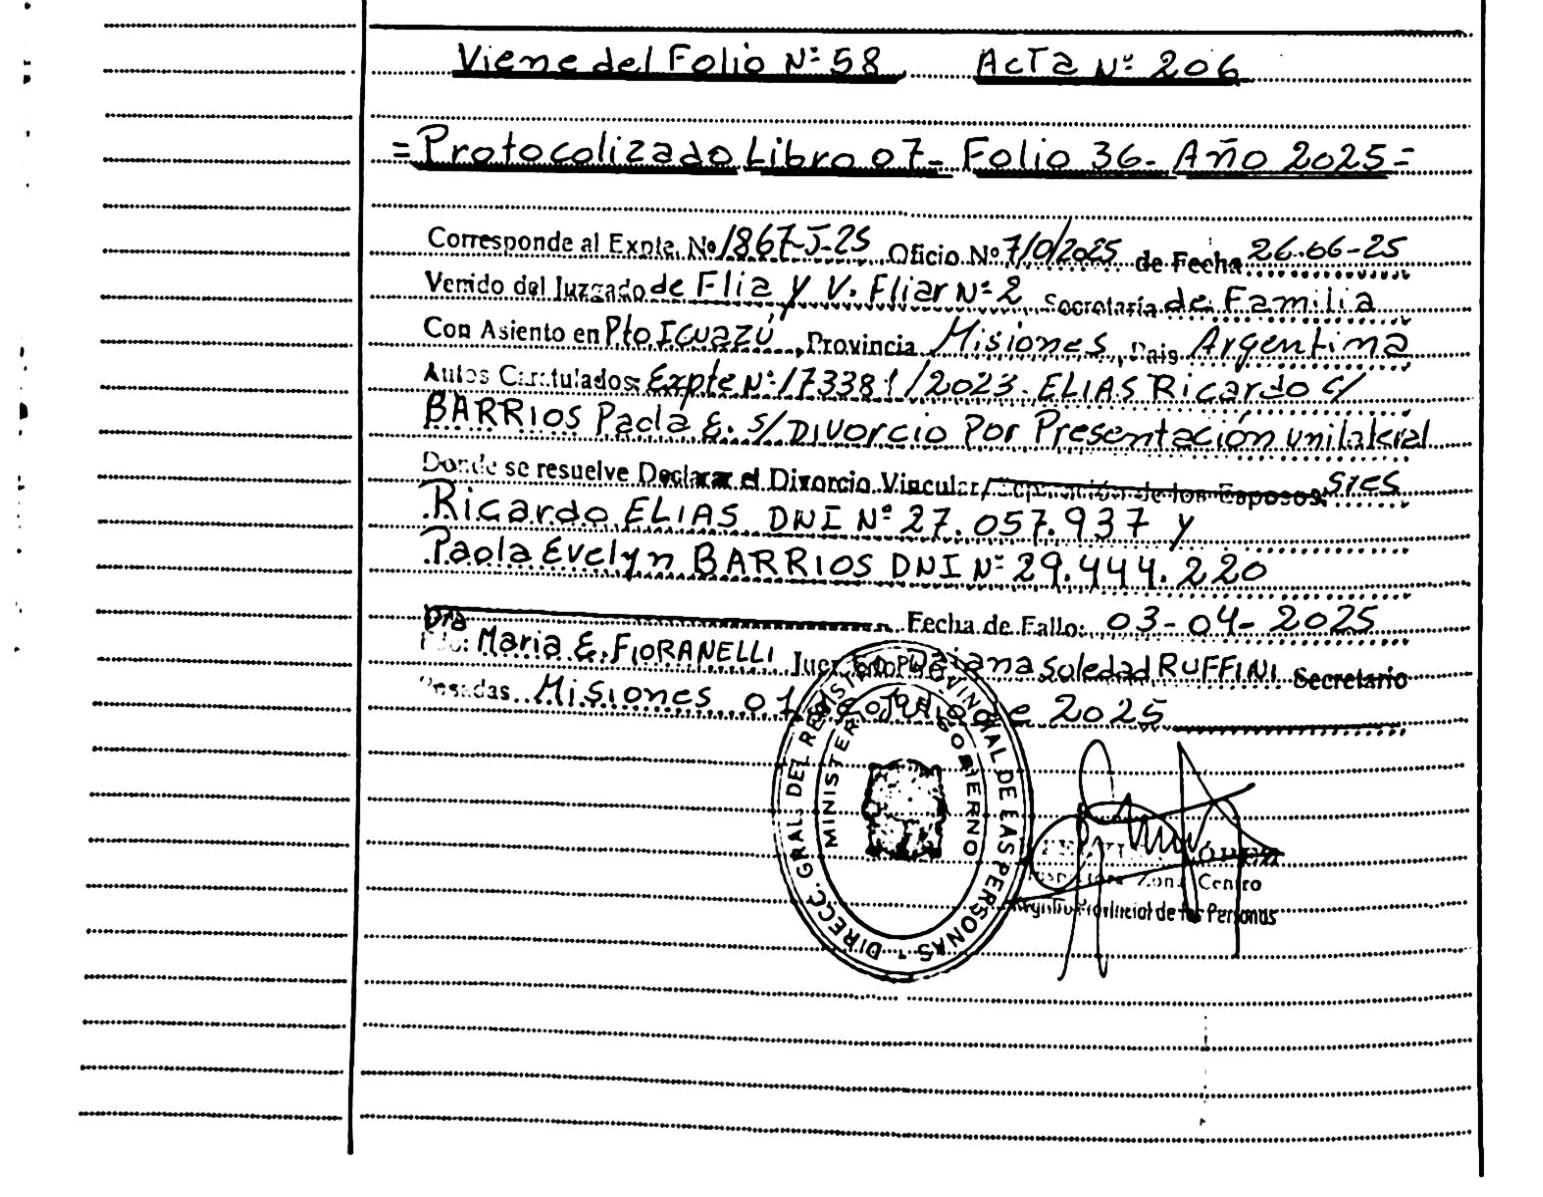 Viene del Folio Nº 58 Acta Nº 206
= Protocolizado Libro 07- Folio 36- Año 2025=
Corresponde al Expte. Nº 1867-J-25 Oficio Nº 710/2025 de Fecha 26-06-25
Venido del Juzgado de Flia y V. Fliar Nº 2 Secretaría de Familia
Con Asiento en Pto Iguazú, Provincia Misiones, País Argentina
Autos Caratulados: Expte Nº 173381/2023. ELIAS Ricardo c/
BARRIOS Paola E. s/ Divorcio Por Presentación unilateral
Donde se resuelve Declarar el Divorcio Vincular/Separación de los Esposos: Sres
Ricardo ELIAS DNI Nº 27.057.937 y
Paola Evelyn BARRIOS DNI Nº 29.444.220
Fecha de Fallo: 03-04-2025
Dra
Fdo: Maria E. FIORANELLI Juez Daiana Soledad RUFFINI Secretario
Posadas. Misiones 01 de Julio de 2025
DIRECC. GRAL. DEL REGISTRO PROVINCIAL DE LAS PERSONAS
MINISTERIO DE GOBIERNO
Inspectora Zona Centro
Registro Provincial de las Personas